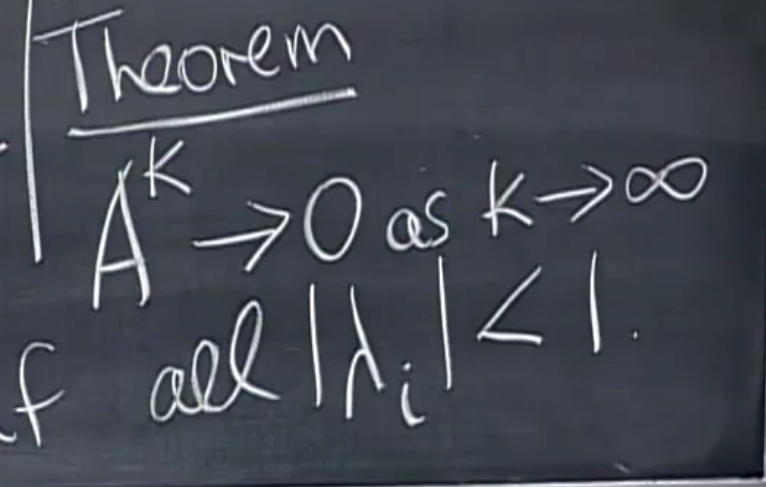 Theorem
A^K → 0 as K → ∞
if all |λ_i| < 1.